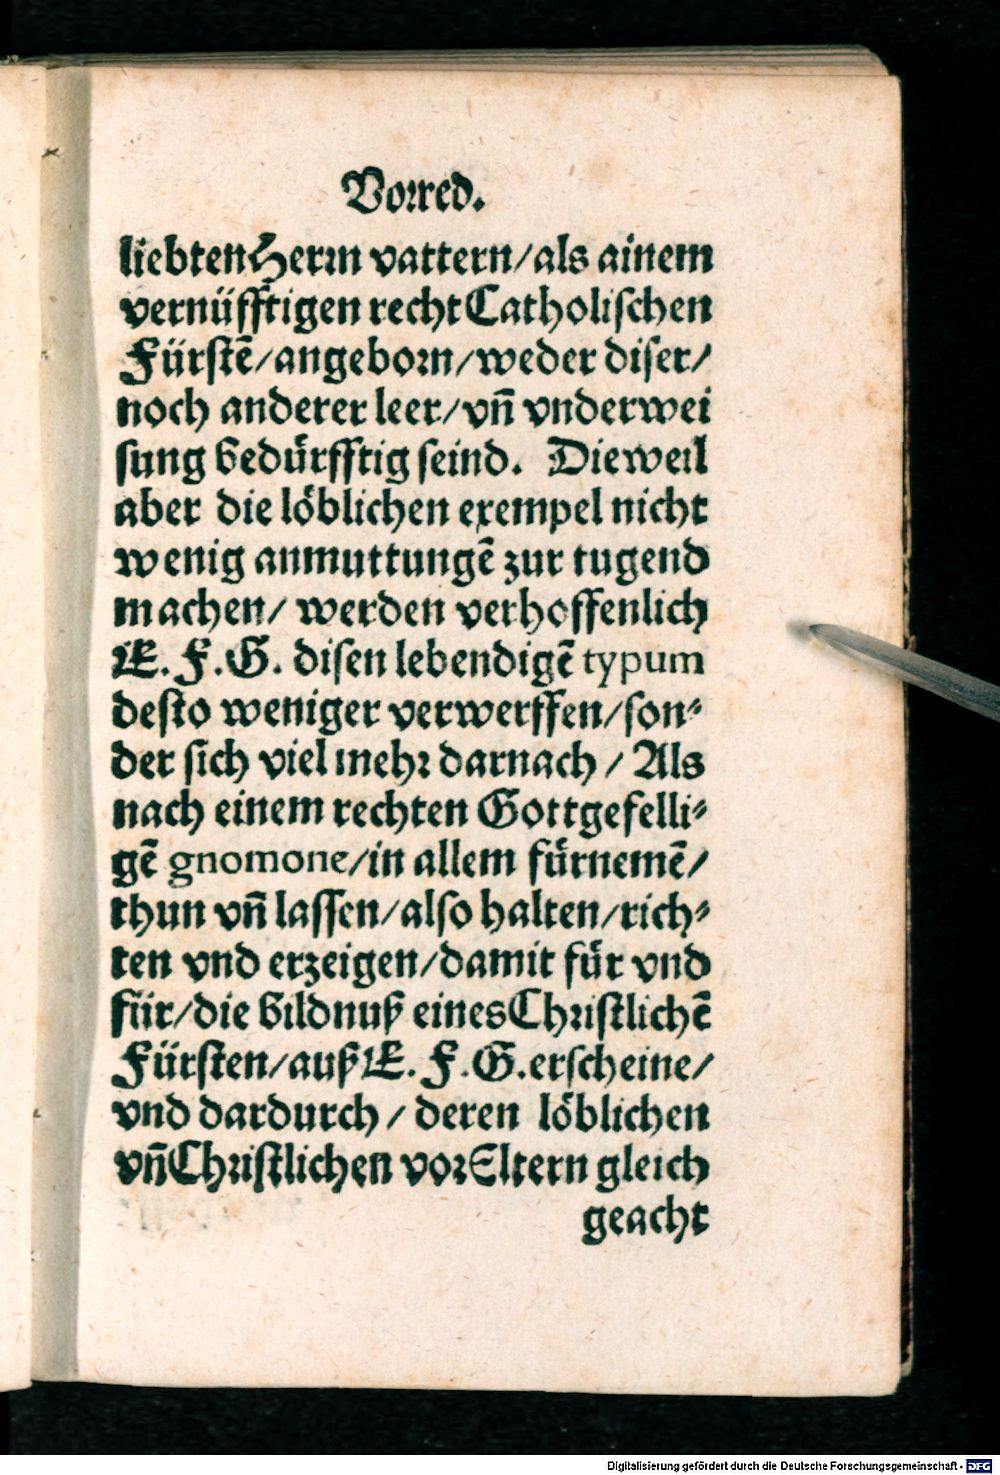 Vorred.
liebten Herrn vattern/als ainem
vernüfftigen recht Catholischen
Fürstē/angeborn/weder diser/
noch anderer leer/vn̄ vnderwei
sung bedürfftig seind. Dieweil
aber die löblichen exempel nicht
wenig anmuttungē zur tugend
machen/ werden verhoffenlich
E. F. G. disen lebendigē typum
desto weniger verwerffen/son-
der sich viel mehr darnach / Als
nach einem rechten Gottgefelli-
gē gnomone/in allem fürnemē/
thun vn̄ lassen/also halten/rich-
ten vnd erzeigen/damit für vnd
für/die bildnuß eines Christlichē
Fürsten/auß E. F. G. erscheine/
vnd dardurch / deren löblichen
vn̄ Christlichen vorEltern gleich
geacht
Digitalisierung gefördert durch die Deutsche Forschungsgemeinschaft - DFG